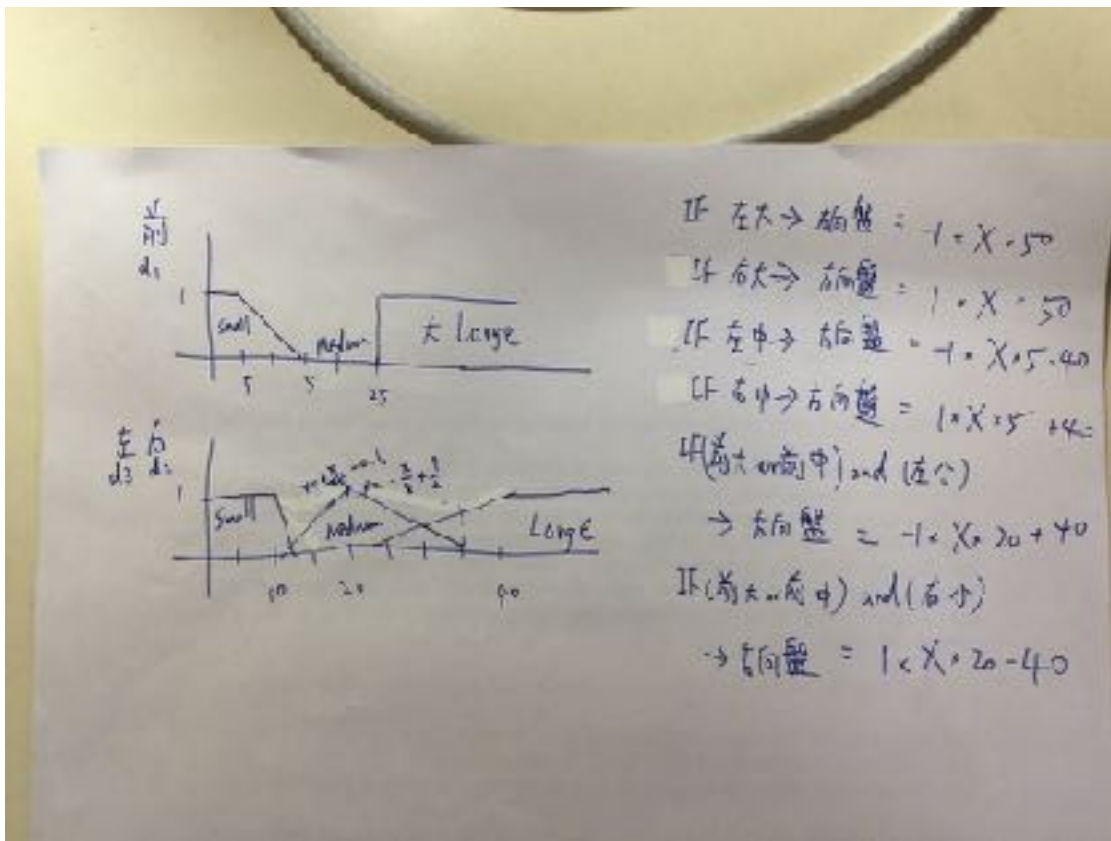 前
d1
1
small
medium
大 Large
5
25
左 右
d3 d2
1
small
medium
Large
10
20
IF 左大 → 方向盤 = -1 * X * 50
IF 右大 → 方向盤 = 1 * X * 50
IF 左中 → 方向盤 = -1 * X * 5 - 40
IF 右中 → 方向盤 = 1 * X * 5 + 40
IF (前大 or 前中) and (左小)
→ 方向盤 = -1 * X * 20 + 40
IF (前大 or 前中) and (右小)
→ 方向盤 = 1 * X * 20 - 40